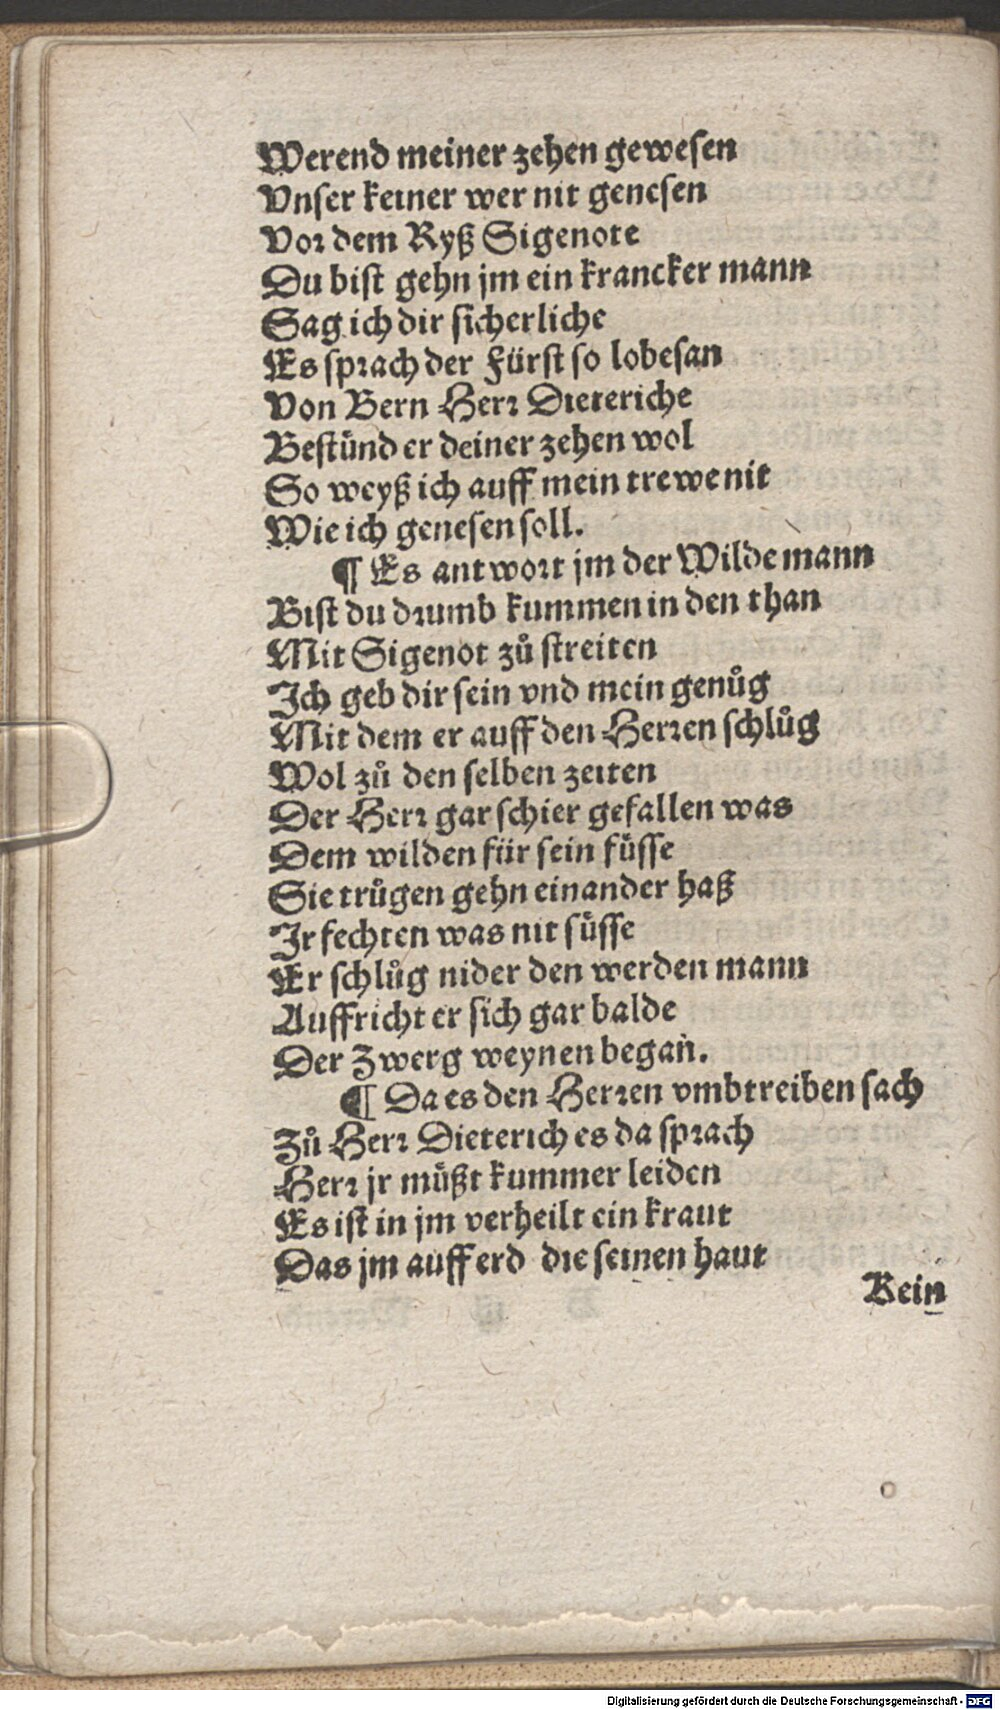 Werend meiner zehen gewesen
Vnser keiner wer nit genesen
Vor dem Ryß Sigenote
Du bist gehn jm ein krancker mann
Sag ich dir sicherliche
Es sprach der Fürst so lobesan
Von Bern Herr Dieteriche
Bestünd er deiner zehen wol
So weyß ich auff mein trewe nit
Wie ich genesen soll.
¶ Es antwort jm der Wilde mann
Bist du drumb kummen in den than
Mit Sigenot zů streiten
Ich geb dir sein vnd mein genůg
Mit dem er auff den Herren schlůg
Wol zů den selben zeiten
Der Herr gar schier gefallen was
Dem wilden für sein füsse
Sie trůgen gehn einander haß
Ir fechten was nit süsse
Er schlůg nider den werden mann
Auffricht er sich gar balde
Der Zwerg weynen began.
¶ Da es den Herren vmbtreiben sach
Zů Herr Dieterich es da sprach
Herr jr müßt kummer leiden
Es ist in jm verheilt ein kraut
Das jm auff erd die seinen haut
Kein
Digitalisierung gefördert durch die Deutsche Forschungsgemeinschaft - DFG